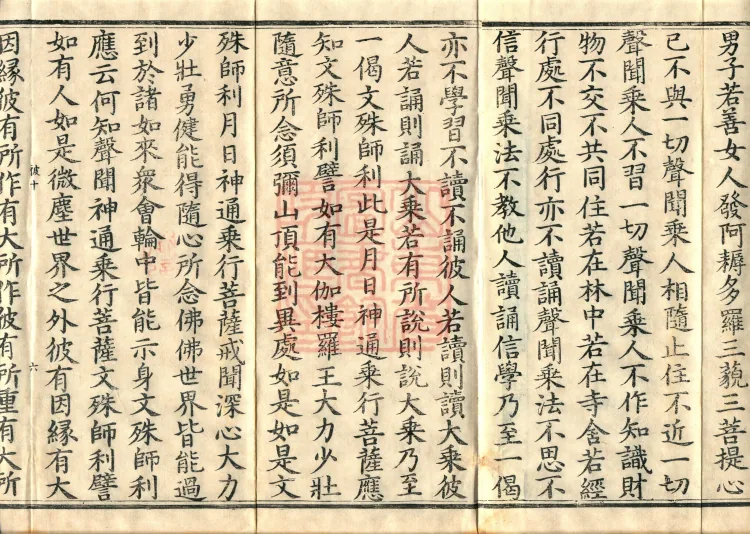 男子若善女人發阿耨多羅三藐三菩提心
已不與一切聲聞乘人相隨止住不近一切
聲聞乘人不習一切聲聞乘人不作知識財
物不交不共同住若在林中若在寺舍若經
行處不同處行亦不讀誦聲聞乘法不思不
信聲聞乘法不教他人讀誦信學乃至一偈
亦不學習不讀不誦彼人若讀則讀大乘彼
人若誦則誦大乘若有所說則說大乘乃至
一偈文殊師利此是月日神通乘行菩薩應
知文殊師利譬如有大伽樓羅王大力少壯
隨意所念須彌山頂能到異處如是如是文
殊師利月日神通乘行菩薩戒聞深心大力
少壯勇健能得隨心所念佛佛世界皆能過
到於諸如來衆會輪中皆能示身文殊師利
應云何知聲聞神通乘行菩薩文殊師利譬
如有人如是微塵世界之外彼有因緣有大
彼十
六
因緣彼有所作有大所作彼有所重有大所